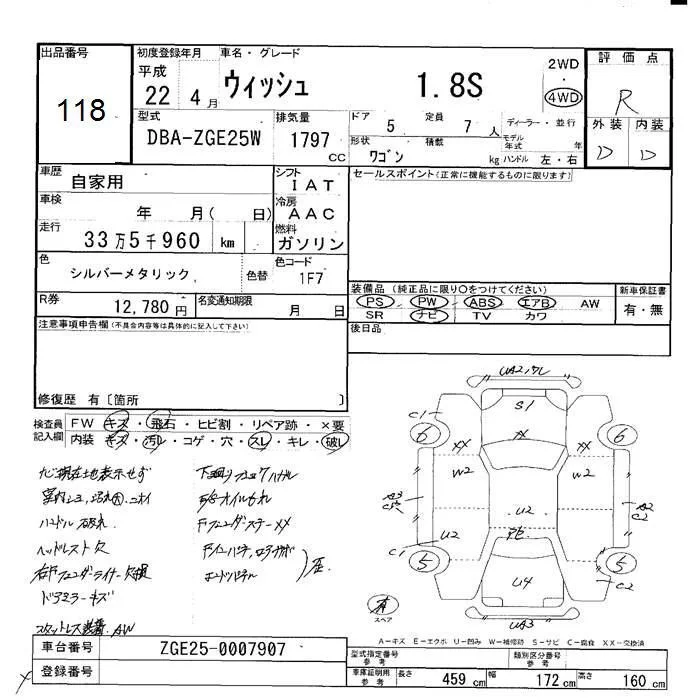 出品番号 初度登録年月 車名・グレード 2WD 評価点
118 平成 22 4月 ウィッシュ 1.8S ・ 4WD R
型式 排気量 ドア 定員 ディーラー・並行 外装 内装
DBA-ZGE25W 1797 CC 5 7人 モデル年式 年 D D
形状 積載 ワゴン kg ハンドル 左・右
車歴 自家用 シフト IAT セールスポイント(正常に機能するものに限ります)
車検 年 月( 日) 冷房 AAC
走行 33万5千960 km 燃料 ガソリン
色 シルバーメタリック 色替 色コード 1F7
装備品(純正品に限り○をつけてください) 新車保証書
R券 12,780円 名変通知期限 月 日 PS PW ABS エアB AW 有・無
SR ナビ TV カワ
注意事項申告欄(不具合内容等は具体的に記入して下さい) 後日品
修復歴 有〔箇所 〕
検査員記入欄 FW キズ・飛石・ヒビ割・リペア跡・×要
内装 キズ・汚レ・コゲ・穴・スレ・キレ・破レ
ナビ現在地表示せず
ハンドル 破れ
ヘッドレスト欠
ドアミラーキズ
スタットレス装着 AW
S1
C1
6 XX XX XX 6
W2 W2
A2
C2
U2 U2
C1
5 5
C2
U4
UA3
有
スペア
A-キズ E-エクボ U-凹み W-補修跡 S-サビ C-腐食 XX-交換済
車台番号 ZGE25-0007907
型式指定番号 参考 類別区分番号 参考
登録番号 車庫証明用 参考 長さ 459 cm 幅 172 cm 高さ 160 cm